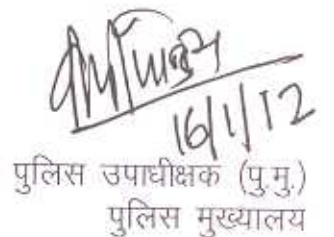 16/1/12
पुलिस उपाधीक्षक (पु.मु.)
पुलिस मुख्यालय